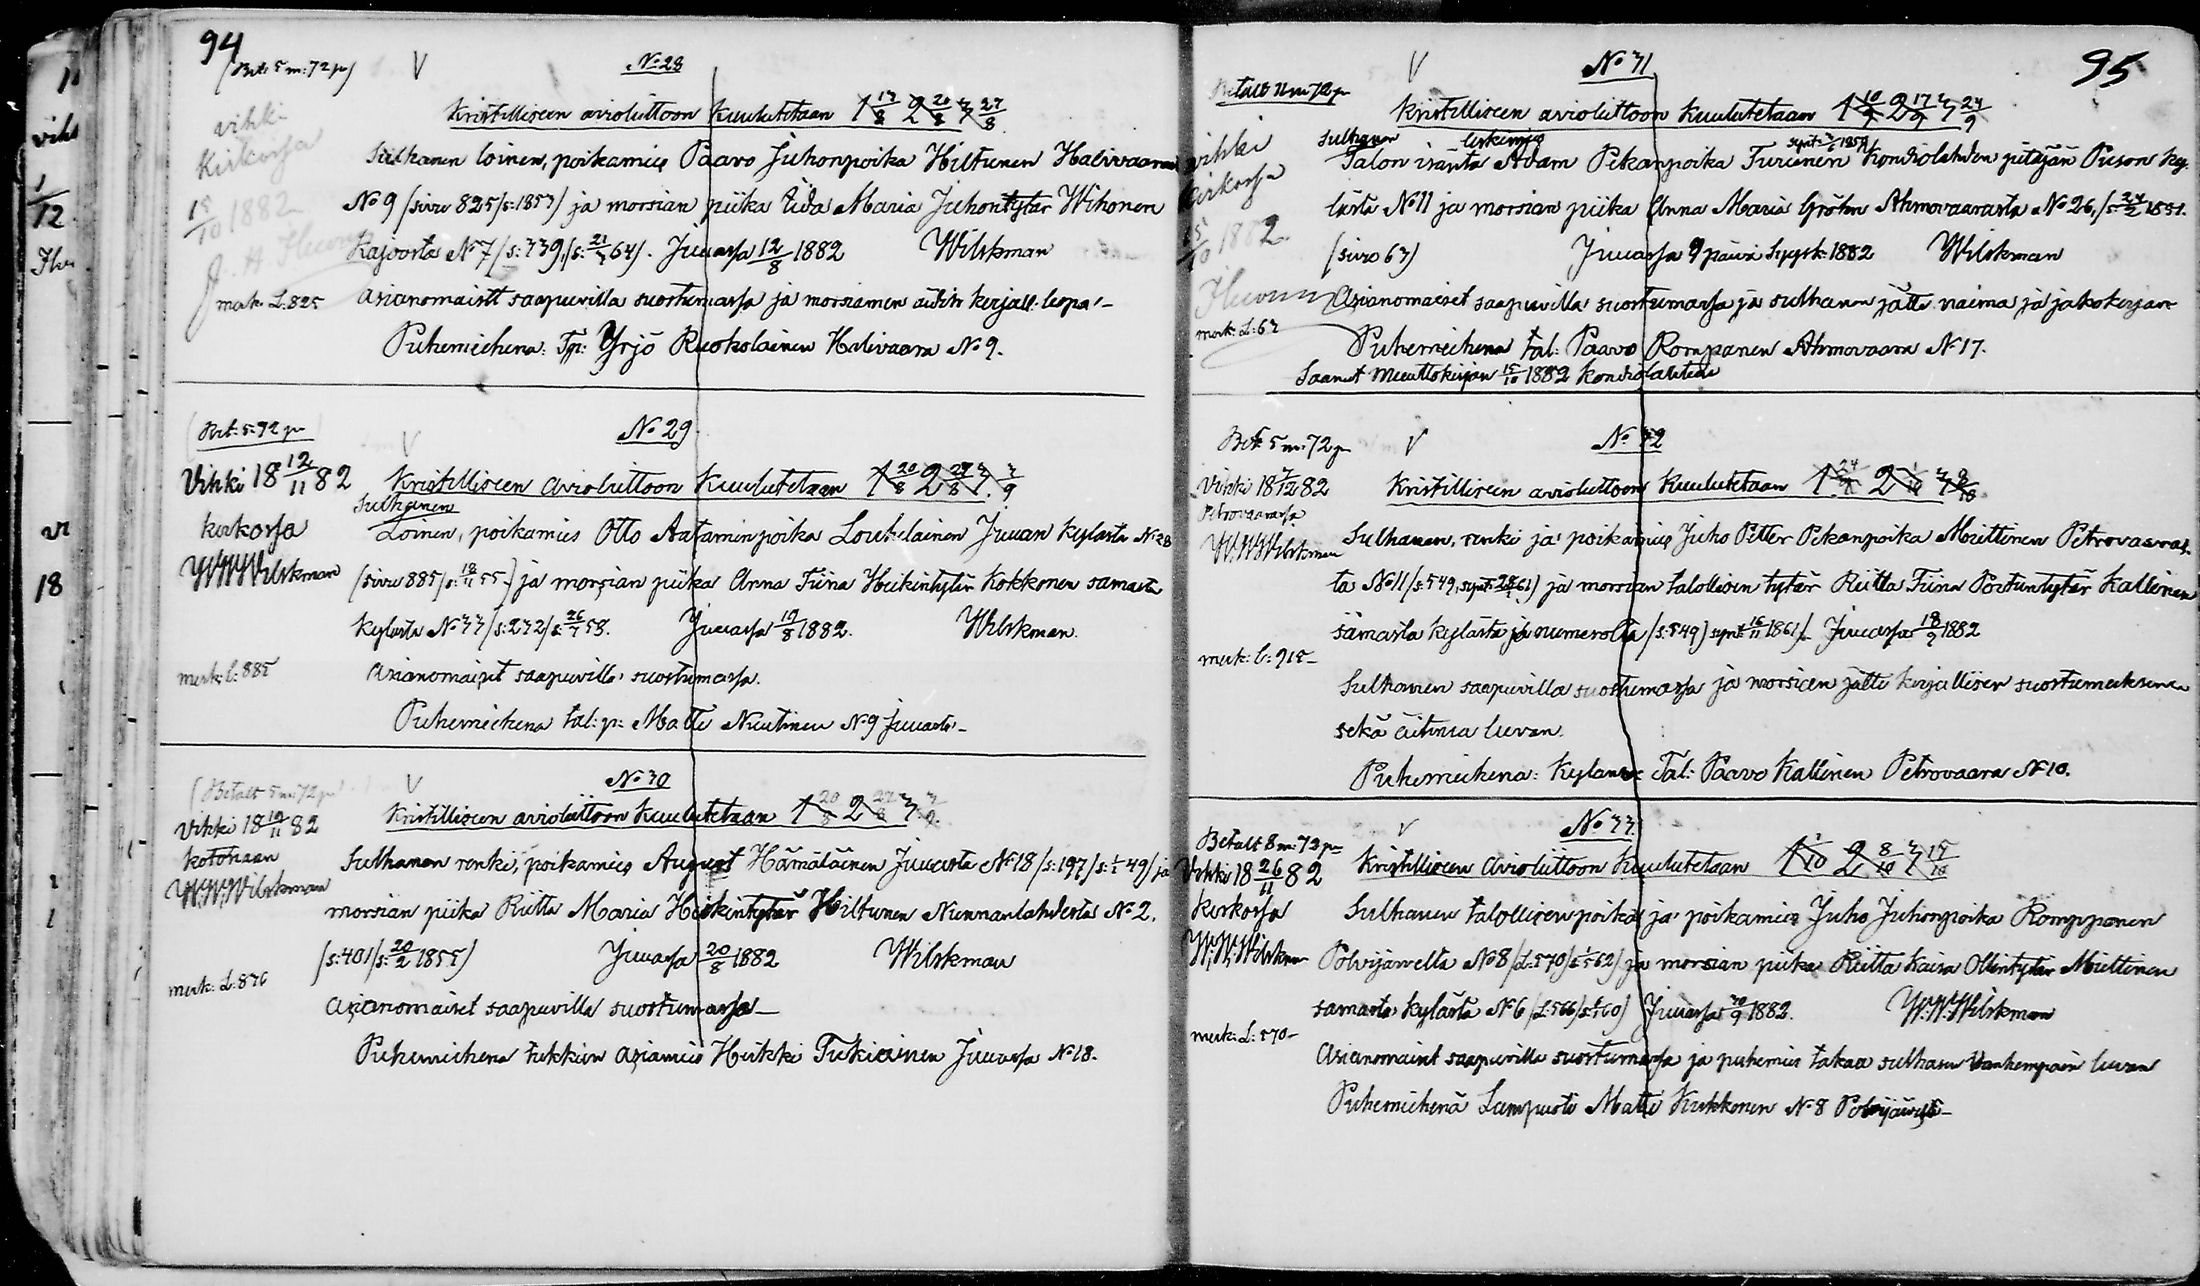 94
(Bet: 5 m: 72 p)
V
No 28
vihki
kirkossa
15/10 1882
Kristilliseen avioliittoon kuulutetaan 1 13/8 2 20/8 3 27/8
Sulhanen loinen, poikamies Paavo Juhonpoika Hiltunen Halivaaran
No 9 (sivu 825/s: 1853) ja morsian piika Iida Maria Juhontytär Wihonen
Kajoosta No 7 (s: 339, (s: 64). Juuassa 12/8 1882 Wilskman
merk: L. 825
Asianomaiset saapuvilla suostumassa ja morsiamen äidin kirjall. lupa -
Puhemiehenä: Tp: Yrjö Ruokolainen Halivaara No 9.
V
No 29
Vihki 18 12/11 82
kirkossa
W.W.Wilskman
Kristilliseen avioliittoon kuulutetaan 1 20/8 2 27/8 3 3/9
Sulhanen
Loinen, poikamies Otto Aataminpoika Louhelainen Juuan kylästä No 28
(sivu 885/s: 55.) ja morsian piika Anna Tiina Heikintytär Kokkonen samasta
kylästä No 33 (s: 232/s: 58. Juuassa 19/8 1882. Wilskman.
merk: L: 885
Asianomaiset saapuvilla suostumassa.
Puhemiehenä tal: p: Matti Nuutinen No 9 Juuasta -
(Betalt 5 m: 72 p)
V
No 30
Vihki 18 82
kotonaan
W.W.Wilskman
Kristilliseen avioliittoon kuulutetaan 1 20/8 2 27/8 3 3/9
Sulhanen renki, poikamies August Hämäläinen Juuasta No 18 (s: 197/s: 49) ja
morsian piika Riitta Maria Heikintytär Hiltunen Nunnanlahdesta No 2.
(s: 401/s: 20/2 1855) Juuassa 20/8 1882 Wilskman
merk: L: 876
Asianomaiset saapuvilla suostumassa -
Puhemiehenä tukkien asiamies Heikki Tukiainen Juuassa No 18.
95
Betalt 11 m 72 p
V
No 31
vihki
kirkossa
15/10 1882
Kristilliseen avioliittoon kuulutetaan 1 10/9 2 17/9 3 24/9
Sulhanen leskimies
Talon isäntä Adam Pekanpoika Turunen Kontiolahden pitäjän Puson ky-
lästä No 11 ja morsian piika Anna Maria Gröhn Ahmovaarasta No 26, (s: 24/2 1851.
(sivu 63) Juuassa 9 päivä Syysk: 1882 Wilskman
merk: L: 63
Asianomaiset saapuvilla suostumassa ja sulhanen jätti naima ja jakokirjan
Puhemiehenä tal: Paavo Romppanen Ahmovaara No 17.
Saanut muuttokirjan 15/10 1882 Kontiolahteen
Bet: 5 m: 72 p
V
No 32
Vihki 18 3/12 82
Petrovaarassa
W.W.Wilskman
Kristilliseen avioliittoon kuulutetaan 1 24/9 2 1/10 3 8/10
Sulhanen, renki ja poikamies Juho Petter Pekanpoika Miettinen Petrovaaras-
ta No 11 (s: 549, synt: 61) ja morsian talollisen tytär Riitta Tiina Poutuntytär Kallinen
samasta kylästä ja numerosta (s: 549) synt: 16/11 1861). Juuassa 18/9 1882
merk: L: 915 -
Sulhanen saapuvilla suostumassa ja morsian jätti kirjallisen suostumuksensa
sekä äitinsä luvan.
Puhemiehenä: Kylanv: Tal: Paavo Kallinen Petrovaara No 10.
Betalt 8 m: 72 p
V
No 33
Vihki 18 26/11 82
kirkossa
W.W.Wilskman
Kristilliseen avioliittoon kuulutetaan 1 1/10 2 8/10 3 15/10
Sulhanen talollisen poika ja poikamies Juho Juhonpoika Romppanen
Polvijärveltä No 8 (L: 570/s: 62) ja morsian piika Riitta Kaisa Ollintytär Miettinen
samasta kylästä No 6 (L: 566/s: 60) Juuassa 30/9 1882. W.W.Wilskman
merk: L: 570 -
Asianomaiset saapuvilla suostumassa ja puhemies takaa sulhasen vanhempain luvan
Puhemiehenä Lampuoti Matti Kukkonen No 8 Polvijärveltä -